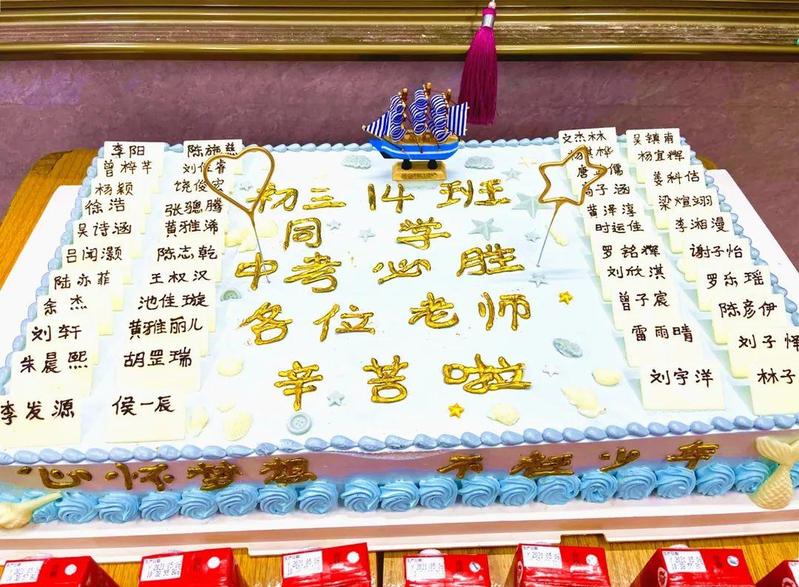 初三14班
同学
中考必胜
各位老师
辛苦啦
心怀梦想 不怼少年
李阳
曾梓芊
杨颖
徐浩
吴诗涵
吕闻灏
陆亦菲
余杰
刘轩
朱晨熙
李发源
陈施慧
饶俊宏
张骢腾
黄雅浠
陈志乾
王权汉
池佳璇
黄雅丽儿
胡罡瑞
侯一辰
文杰林
黄泽淳
时运佳
罗铭辉
刘欣淇
曾子宸
雷雨晴
刘宇洋
吴镇甫
杨宜辉
姜科佶
梁煊翊
李湘漫
谢子怡
罗乐瑶
陈彦伊
刘子怿
林子